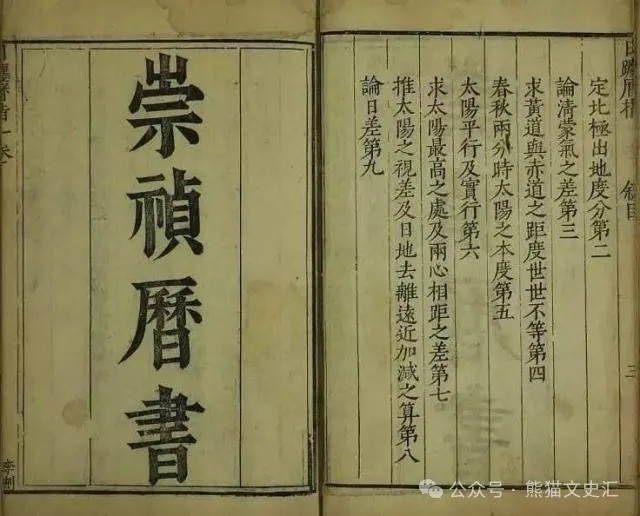 日躔曆指
敘目
三
定北極出地度分第二
論清蒙氣之差第三
求黃道與赤道之距度世世不等第四
春秋兩分時太陽之本度第五
太陽平行及實行第六
求太陽最高之處及兩心相距之差第七
推太陽之視差及日地去離遠近加減之算第八
論日差第九
崇禎曆書
日躔曆指一卷
公众号 · 熊猫文史汇